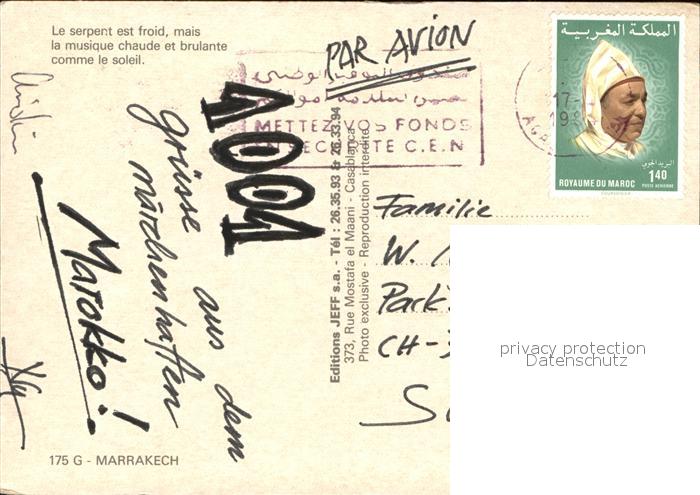 Le serpent est froid, mais
la musique chaude et brulante
comme le soleil.
PAR AVION
METTEZ VOS FONDS
C.E.N
المملكة المغربية
البريد الجوي
1,40
ROYAUME DU MAROC
POSTE AERIENNE
1001
grüsse aus dem
märchenhaften
Marokko!
Editions JEFF s.a. - Tél : 26.35.93 & 26.33.94
373, Rue Mostafa el Maani - Casablanca
Photo exclusive - Reproduction interdite
Familie
W.
Park
CH-3
privacy protection
Datenschutz
175 G - MARRAKECH